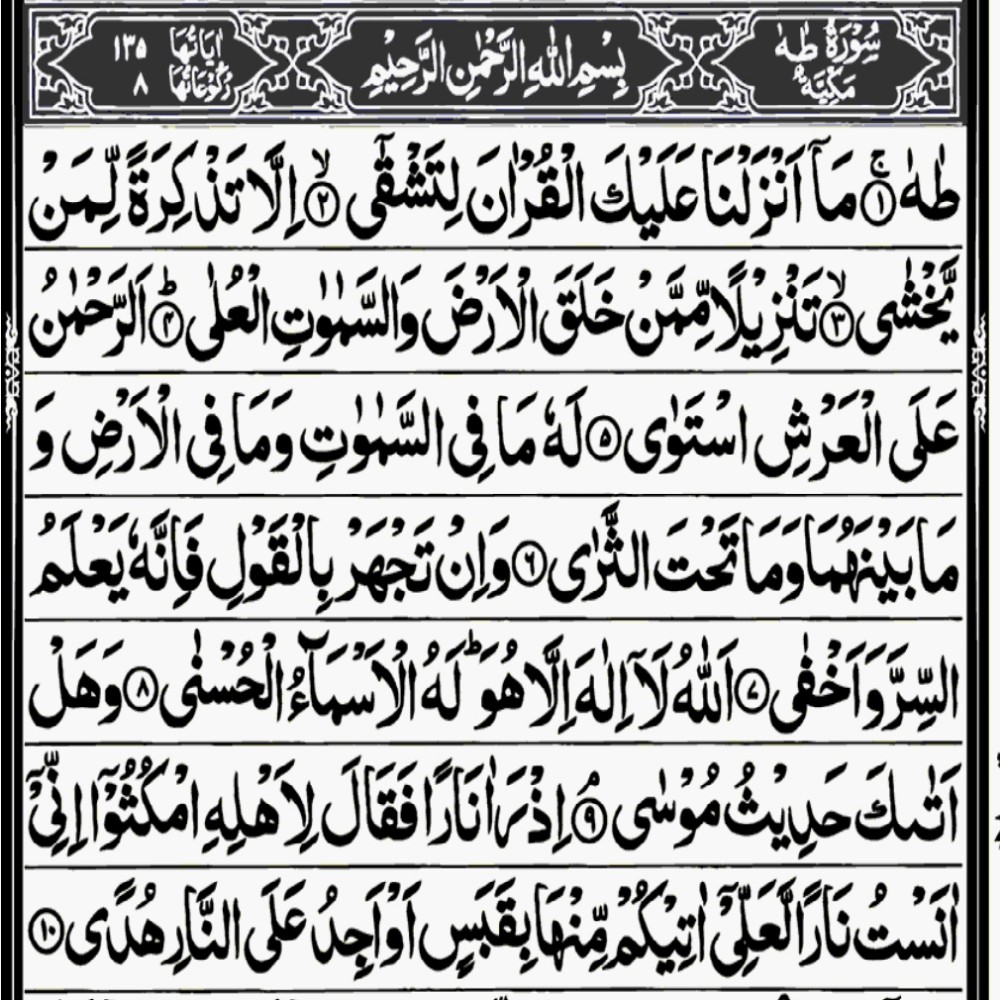 سُوْرَةُ طٰهٰ مَكِّيَّةٌ بِسْمِ اللّٰهِ الرَّحْمٰنِ الرَّحِيْمِ اٰيَاتُهَا ١٣٥ رُكُوْعَاتُهَا ٨
طٰهٰ ۚ﴿١﴾ مَاۤ اَنْزَلْنَا عَلَيْكَ الْقُرْاٰنَ لِتَشْقٰۤى ۙ﴿٢﴾ اِلَّا تَذْكِرَةً لِّمَنْ
يَّخْشٰى ۙ﴿٣﴾ تَنْزِيْلًا مِّمَّنْ خَلَقَ الْاَرْضَ وَالسَّمٰوٰتِ الْعُلٰى ؕ﴿٤﴾ اَلرَّحْمٰنُ
عَلَى الْعَرْشِ اسْتَوٰى ﴿٥﴾ لَهٗ مَا فِى السَّمٰوٰتِ وَمَا فِى الْاَرْضِ وَ
مَا بَيْنَهُمَا وَمَا تَحْتَ الثَّرٰى ﴿٦﴾ وَاِنْ تَجْهَرْ بِالْقَوْلِ فَاِنَّهٗ يَعْلَمُ
السِّرَّ وَاَخْفٰى ﴿٧﴾ اَللّٰهُ لَاۤ اِلٰهَ اِلَّا هُوَ ؕ لَهُ الْاَسْمَآءُ الْحُسْنٰى ﴿٨﴾ وَهَلْ
اَتٰىكَ حَدِيْثُ مُوْسٰى ۘ﴿٩﴾ اِذْ رَاٰ نَارًا فَقَالَ لِاَهْلِهِ امْكُثُوْۤا اِنِّىْۤ
اٰنَسْتُ نَارًا لَّعَلِّىْۤ اٰتِيْكُمْ مِّنْهَا بِقَبَسٍ اَوْ اَجِدُ عَلَى النَّارِ هُدًى ﴿١٠﴾